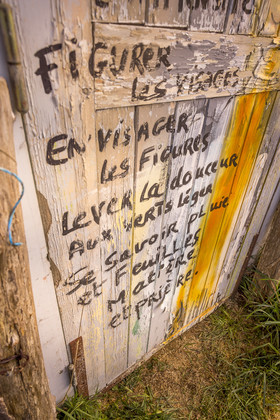 FIGURER
LES VISAGES
EN VISAGER
LES FIGURES
LEVER LA DOUCEUR
AUX VERTS LÉGUM
SE SAVOIR PLUIE
ET FEUILLES
MATIÈRE
ET PRIÈRE.